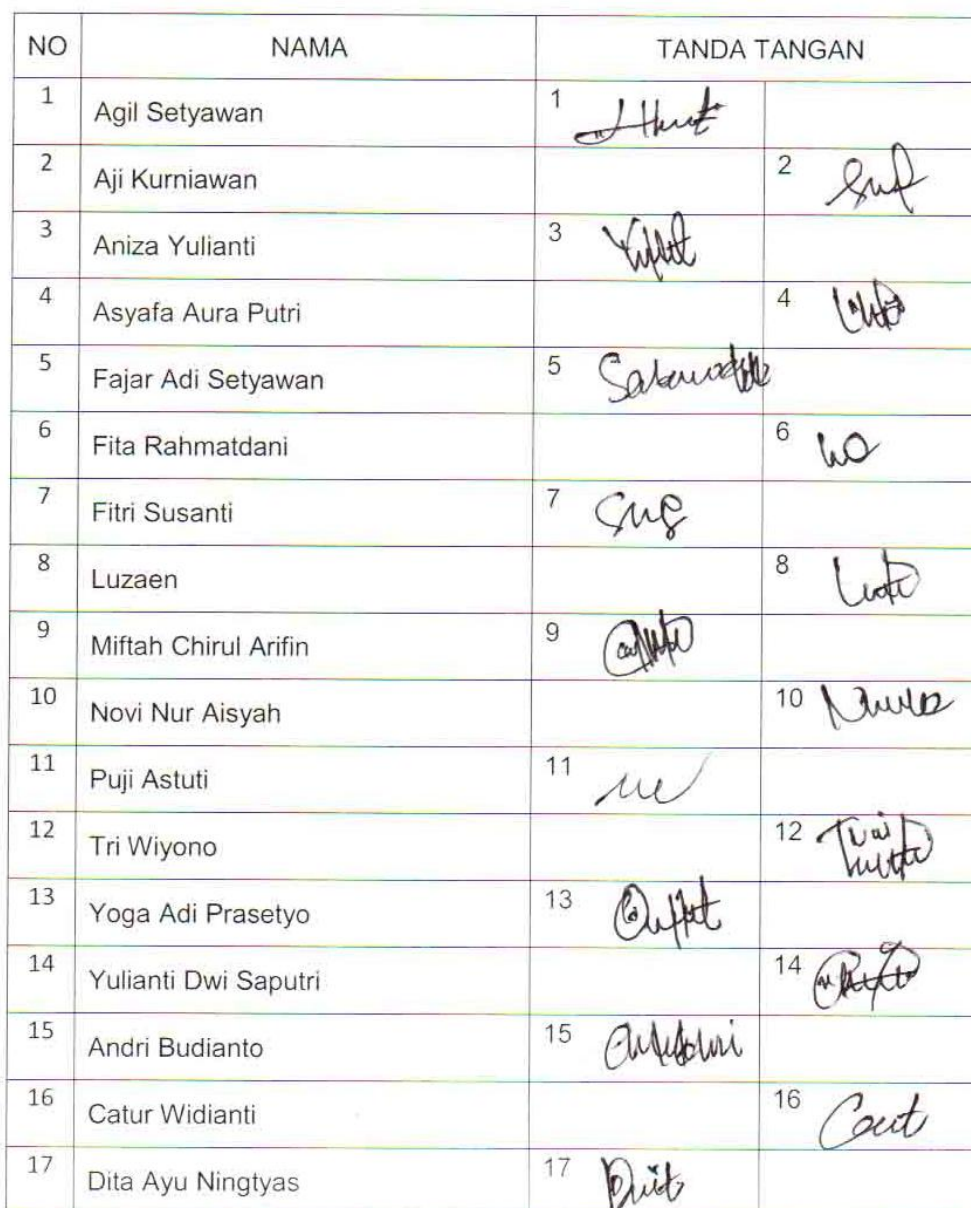 NO NAMA TANDA TANGAN
1 Agil Setyawan 1
2 Aji Kurniawan 2
3 Aniza Yulianti 3
4 Asyafa Aura Putri 4
5 Fajar Adi Setyawan 5
6 Fita Rahmatdani 6
7 Fitri Susanti 7
8 Luzaen 8
9 Miftah Chirul Arifin 9
10 Novi Nur Aisyah 10
11 Puji Astuti 11
12 Tri Wiyono 12
13 Yoga Adi Prasetyo 13
14 Yulianti Dwi Saputri 14
15 Andri Budianto 15
16 Catur Widianti 16
17 Dita Ayu Ningtyas 17